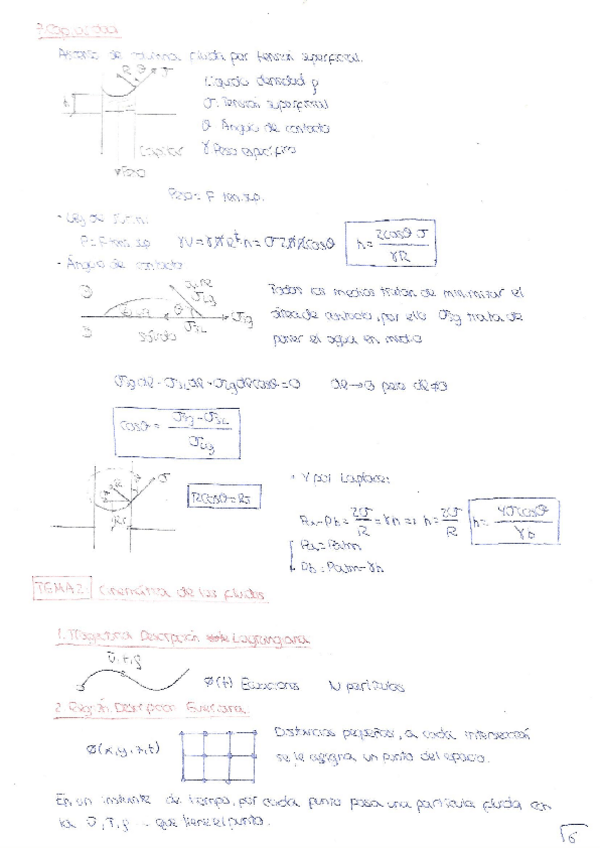 7. Capilaridad
Ascenso de columna fluida por tensión superficial.
R θ σ
Líquido densidad ρ
σ: Tensión superficial
h
θ Ángulo de contacto
Capilar
γ Peso específico
Vidrio
Peso = F ten. sup.
· Ley de Jurin:
P = F ten. sup γV = γπR²h = σ2πRcosθ h = 2cosθ σ / γR
· Ángulo de contacto
σlg
θ σsg
σsl
Sólido
Todos los medios tratan de minimizar el
área de contacto, por ello σsg trata de
poner el agua en medio
σsg dR - σsl dR - σlg dR cosθ = 0 dR → 0 pero dR ≠ 0
cosθ = σsg - σsl / σlg
R σ
Rcosθ = RT
· Y por Laplace:
Pa - Pb = 2σ / R = γh => h = 2σ / R h = 4σcosθ / γD
Pa = Patm
Pb = Patm - γh
TEMA 2: Cinemática de los fluidos
1. Descripción Lagrangiana
v, T, ρ
ϕ(t) Ecuaciones N partículas
2. Descripción Euleriana
ϕ(x, y, z, t)
Distancias pequeñas, a cada intersección
se le asigna un punto del espacio.
En un instante de tiempo, por cada punto pasa una partícula fluida con
la v, T, ρ ... que tiene el punto.
6